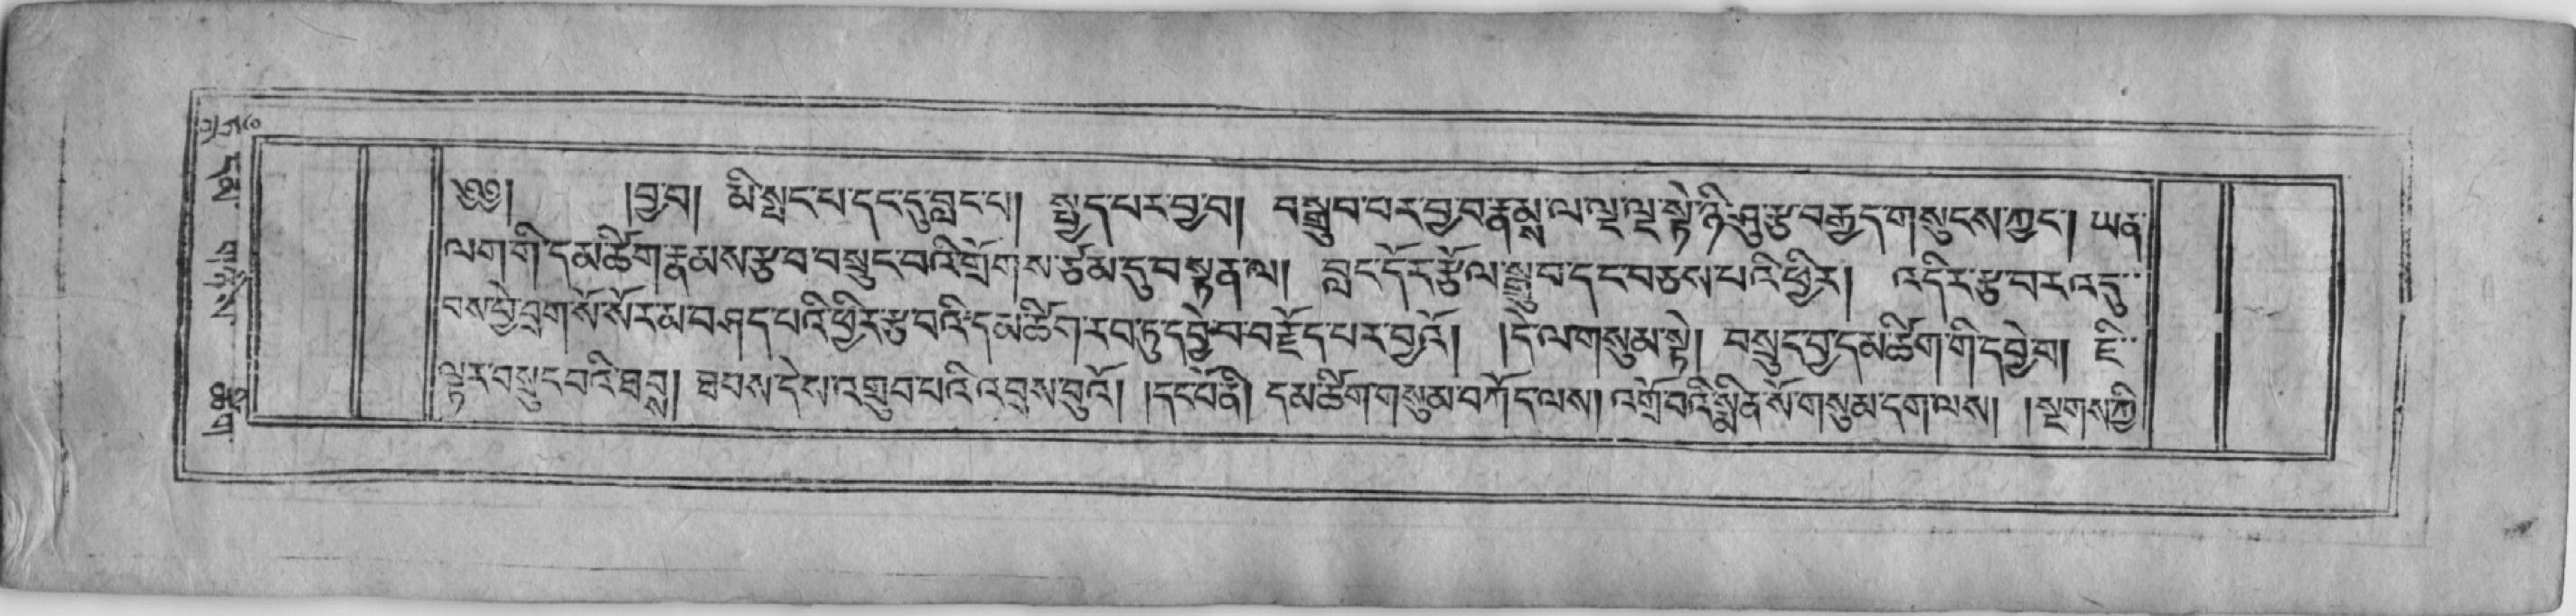 ༄༅། །བྱ་བ། མི་སྤང་པ་དང་དུ་བླང་པ། སྤྱད་པར་བྱ་བ། བསྒྲུབ་པར་བྱ་བ་རྣམས་ལ་ལྔ་ལྔ་སྟེ་ཉི་ཤུ་རྩ་བརྒྱད་གསུངས་ཀྱང་། ཡན་
ལག་གི་དམ་ཚིག་རྣམས་རྩ་བ་བསྲུང་བའི་གྲོགས་ཙམ་དུ་བསྟན་ལ། བླང་དོར་རྩོལ་སྒྲུབ་དང་བཅས་པའི་ཕྱིར། འདིར་རྩ་བར་འདུ་
བས་བྱེ་བྲག་སོ་སོར་མ་བཤད་པའི་ཕྱིར་རྩ་བའི་དམ་ཚིག་རབ་ཏུ་དབྱེ་བ་བརྗོད་པར་བྱའོ། །དེ་ལ་གསུམ་སྟེ། བསྲུང་བྱ་དམ་ཚིག་གི་དབྱེ་བ། ཇི་
ལྟར་བསྲུང་བའི་ཐབས། ཐབས་དེས་འགྲུབ་པའི་འབྲས་བུའོ། །དང་པོ་ནི། དམ་ཚིག་གསུམ་བཀོད་ལས། འགྲོ་བའི་སྨིན་སོ་གསུམ་དག་ལས། །སྔགས་ཀྱི་